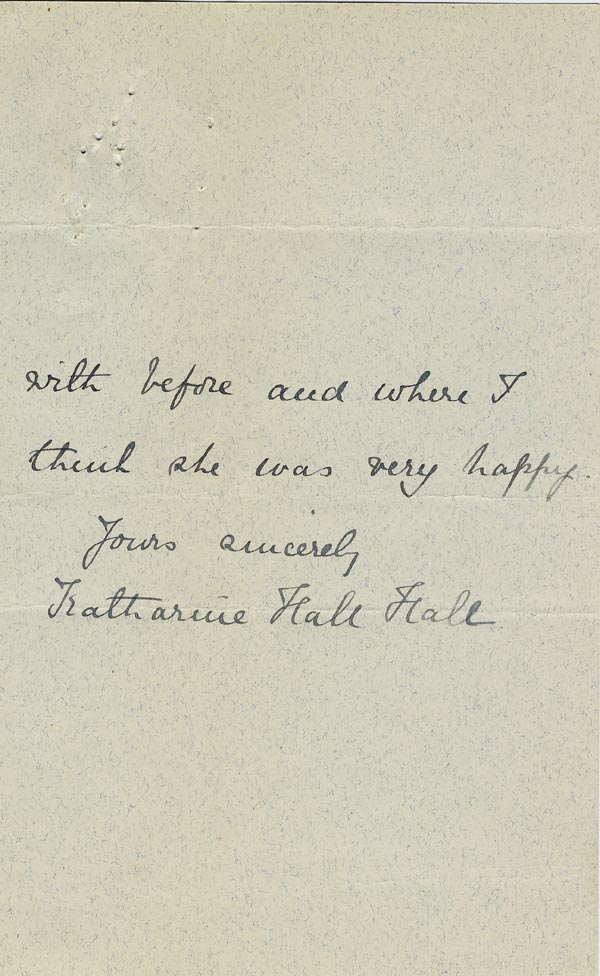 with before and where I
think she was very happy.
Yours sincerely
Katharine Hall Hall